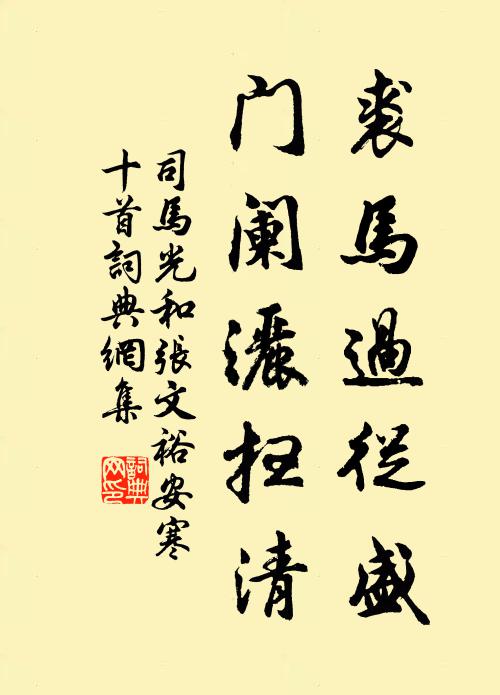 裘馬過從盛
门阑灑扫清
司馬光和張文裕安寒
十首詞典網集
詞典網印